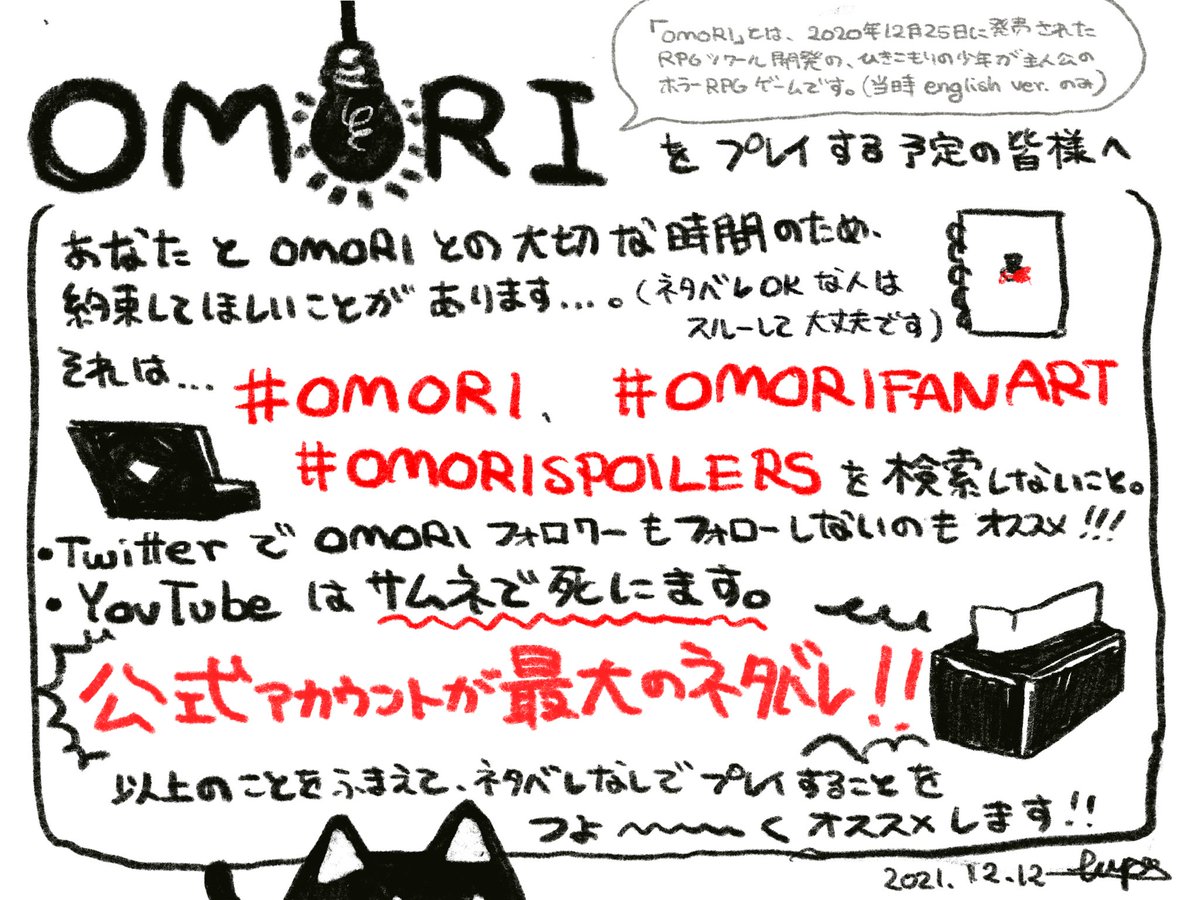 「OMORI」とは、2020年12月25日に発売された
RPGツクール開発の、ひきこもりの少年が主人公の
ホラーRPGゲームです。(当時 english ver. のみ)
OMORI
を プレイする予定の皆様へ
あなたと OMORI との大切な時間のため、
約束してほしいことがあります…。(ネタバレOKな人は
スルーして大丈夫です)
それは…
#OMORI、 #OMORIFANART
#OMORISPOILERS を検索しないこと。
・Twitter で OMORI フォロワーもフォローしないのも オススメ!!!
・YouTube は サムネで死にます。
公式アカウントが最大のネタバレ!!
以上のことをふまえて、ネタバレなしでプレイすることを
つよ〜〜〜く オススメします!!
2021.12.12